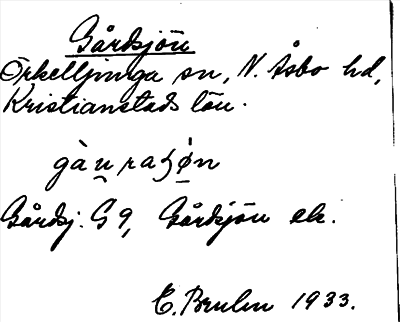 Gårdsjön
Örkelljunga sn, N. Åsbo hd,
Kristianstads län.
Gårdsj: G 9, Gårdsjön ek.
E. Bruhn 1933.